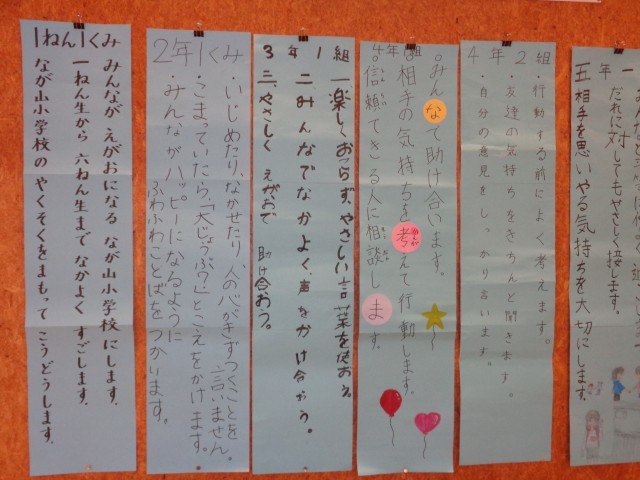 1ねん1くみ
みんなが えがおになる なが山小学校 にします。
一ねん生から 六ねん生まで なかよく すごします。
なが山小学校の やくそくをまもって こうどうします。
2年1くみ
・いじめたり、なかせたり、人の心がきずつくことを
言いません。
・こまっていたら、「大じょうぶ?」とこえをかけます。
・みんながハッピーになるように
ふわふわことばをつかいます。
3年1組
一、楽しく、おこらず、やさしい言葉を使おう。
二、みんなでなかよく、声をかけ合おう。
三、やさしく えがおで 助け合おう。
4年 組
。みんなで助け合います。
。相手の気持ちを考えて行動します。
。信頼できる人に相談します。
4年2組
・行動する前によく考えます。
・友達の気持ちをきちんと聞きます。
・自分の意見をしっかり言います。
年一
だれに対してもやさしく接します。
五、相手を思いやる気持ちを大切にします。